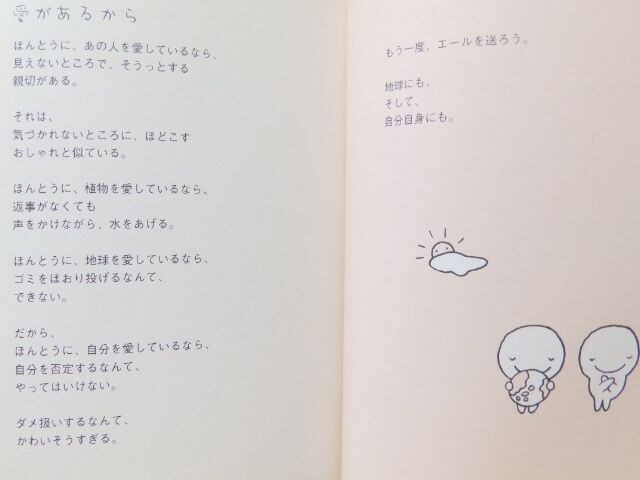 愛があるから
ほんとうに、あの人を愛しているなら、
見えないところで、そうっとする
親切がある。
それは、
気づかれないところに、ほどこす
おしゃれと似ている。
ほんとうに、植物を愛しているなら、
返事がなくても
声をかけながら、水をあげる。
ほんとうに、地球を愛しているなら、
ゴミをほおり投げるなんて、
できない。
だから、
ほんとうに、自分を愛しているなら、
自分を否定するなんて、
やってはいけない。
ダメ扱いするなんて、
かわいそうすぎる。
もう一度、エールを送ろう。
地球にも、
そして、
自分自身にも。